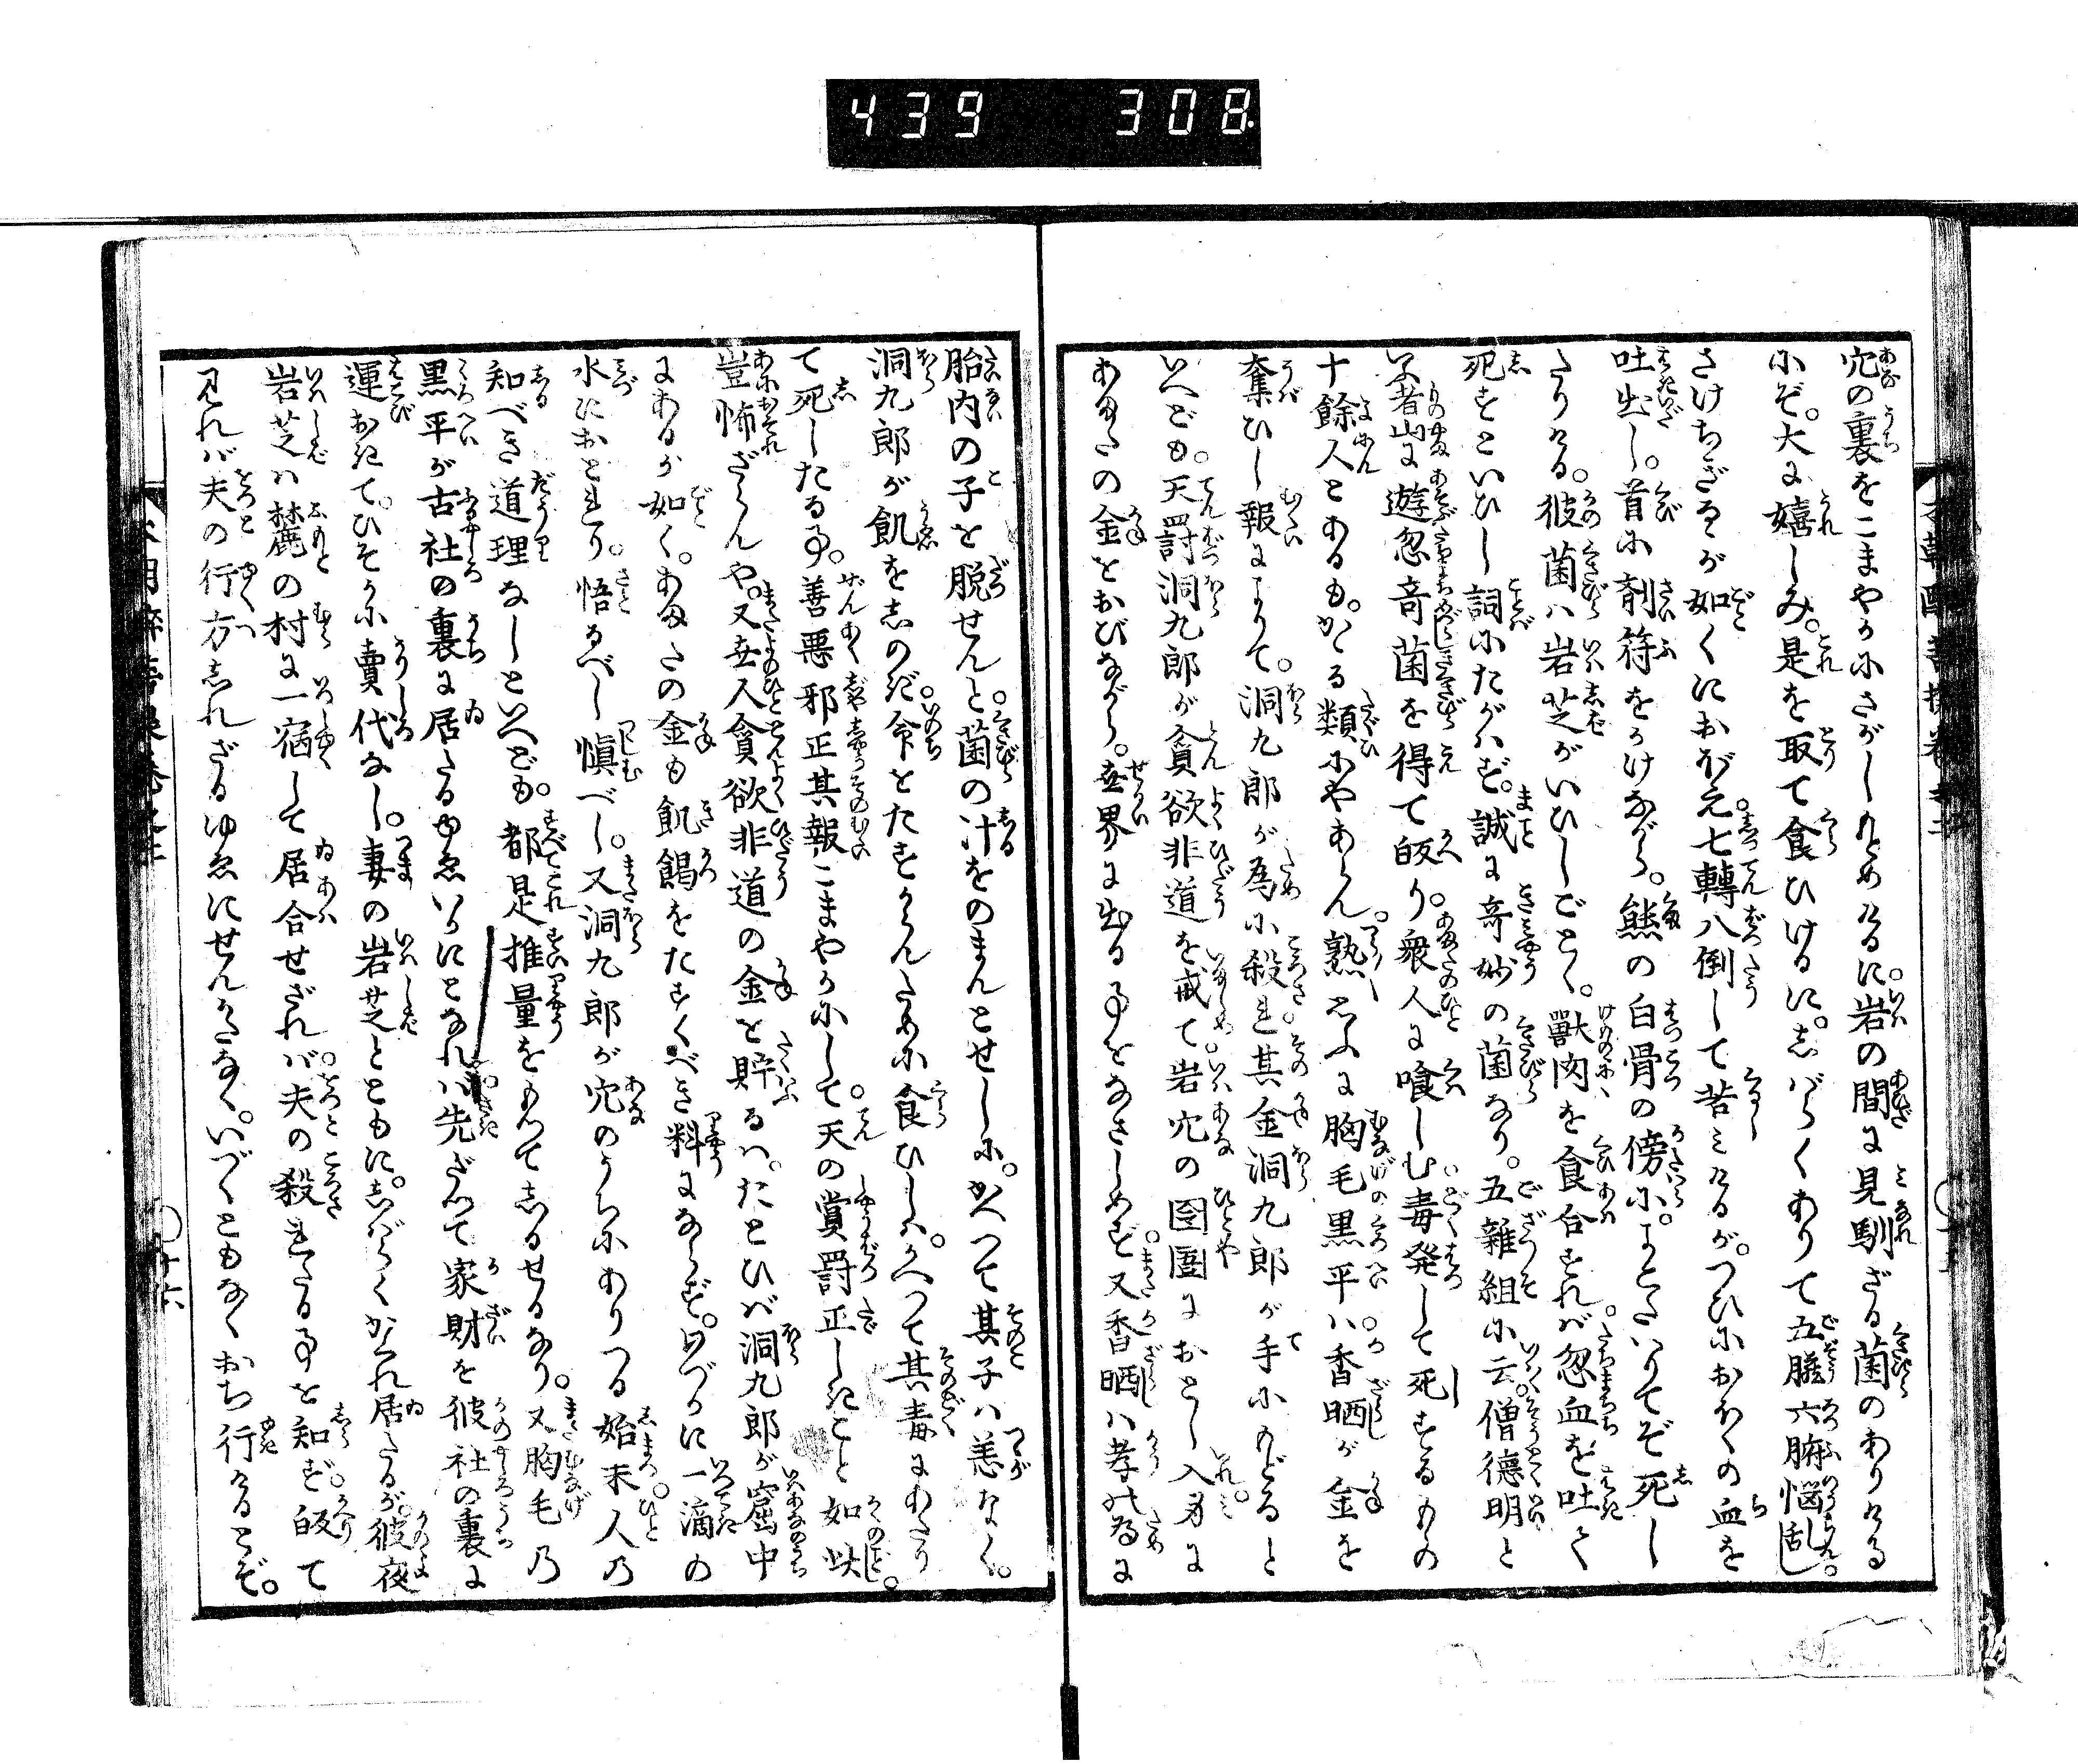 439 308
穴の裏をこまやかにさがしもとめけるに。岩の間に見馴ざる菌のありける
にぞ。大に嬉しみ。是を取て食ひけるに。しばらくありて五臓六腑悩乱し
さけちぎるが如くにおぼえ。七轉八倒して苦みけるが。つひにおほくの血を
吐出し。首に剤符をかけながら。熊の白骨の傍に。よこたはりてぞ死し
たりける。彼菌ハ岩芝がいひしごとく。獣肉を食合すれバ忽血を吐て
死すといひし詞にたがハず。誠に奇妙の菌なり。五雑組に云僧徳明と
いふ者山に遊忽奇菌を得て皈り。衆人に喰しむ毒発して死するもの
十餘人とあるも。かゝる類にやあらん。熟思ふに胸毛黒平ハ。香晒が金を
奪ひし報によりて。洞九郎が為に殺され其金洞九郎が手にもどると
いへども。天罸洞九郎が貪欲非道を戒て岩穴の囹圄におとし入身に
あまたの金をおびながら。世界に出る事をなさしめず又香晒ハ孝の為に
胎内の子を脱せんと。菌の汁をのまんとせしに。かへつて其子ハ恙なく。
洞九郎が飢をしのぎ。命をたすからんために食ひしハ。かへつて其毒にあたり
て死したる事。善悪邪正其報こまやかにして。天の賞罸正しきこと如此。
豈怖ざらんや。又世人貪欲非道の金を貯るハ。たとひバ洞九郎が窟中
にあるが如く。あまたの金も飢餲をたすくべき料にならず。わづかに一滴の
水におとれり。悟るべし慎べし。又洞九郎が穴のうちにありつる始末人の
知べき道理なしといへども。都是推量をもつてしるせるなり。又胸毛の
黒平が古社の裏に居たるゆゑいかにとなれバ先だつて家財を彼社の裏に
運おきて。ひそかに賣代なし。妻の岩芝とともに。しばらくかくれ居たるが。彼夜
岩芝ハ麓の村に一宿して居合せざれバ。夫の殺されたる事を知ず。皈て
見れバ夫の行方しれざるゆゑにせんかたなく。いづくともなくおち行けるとぞ。